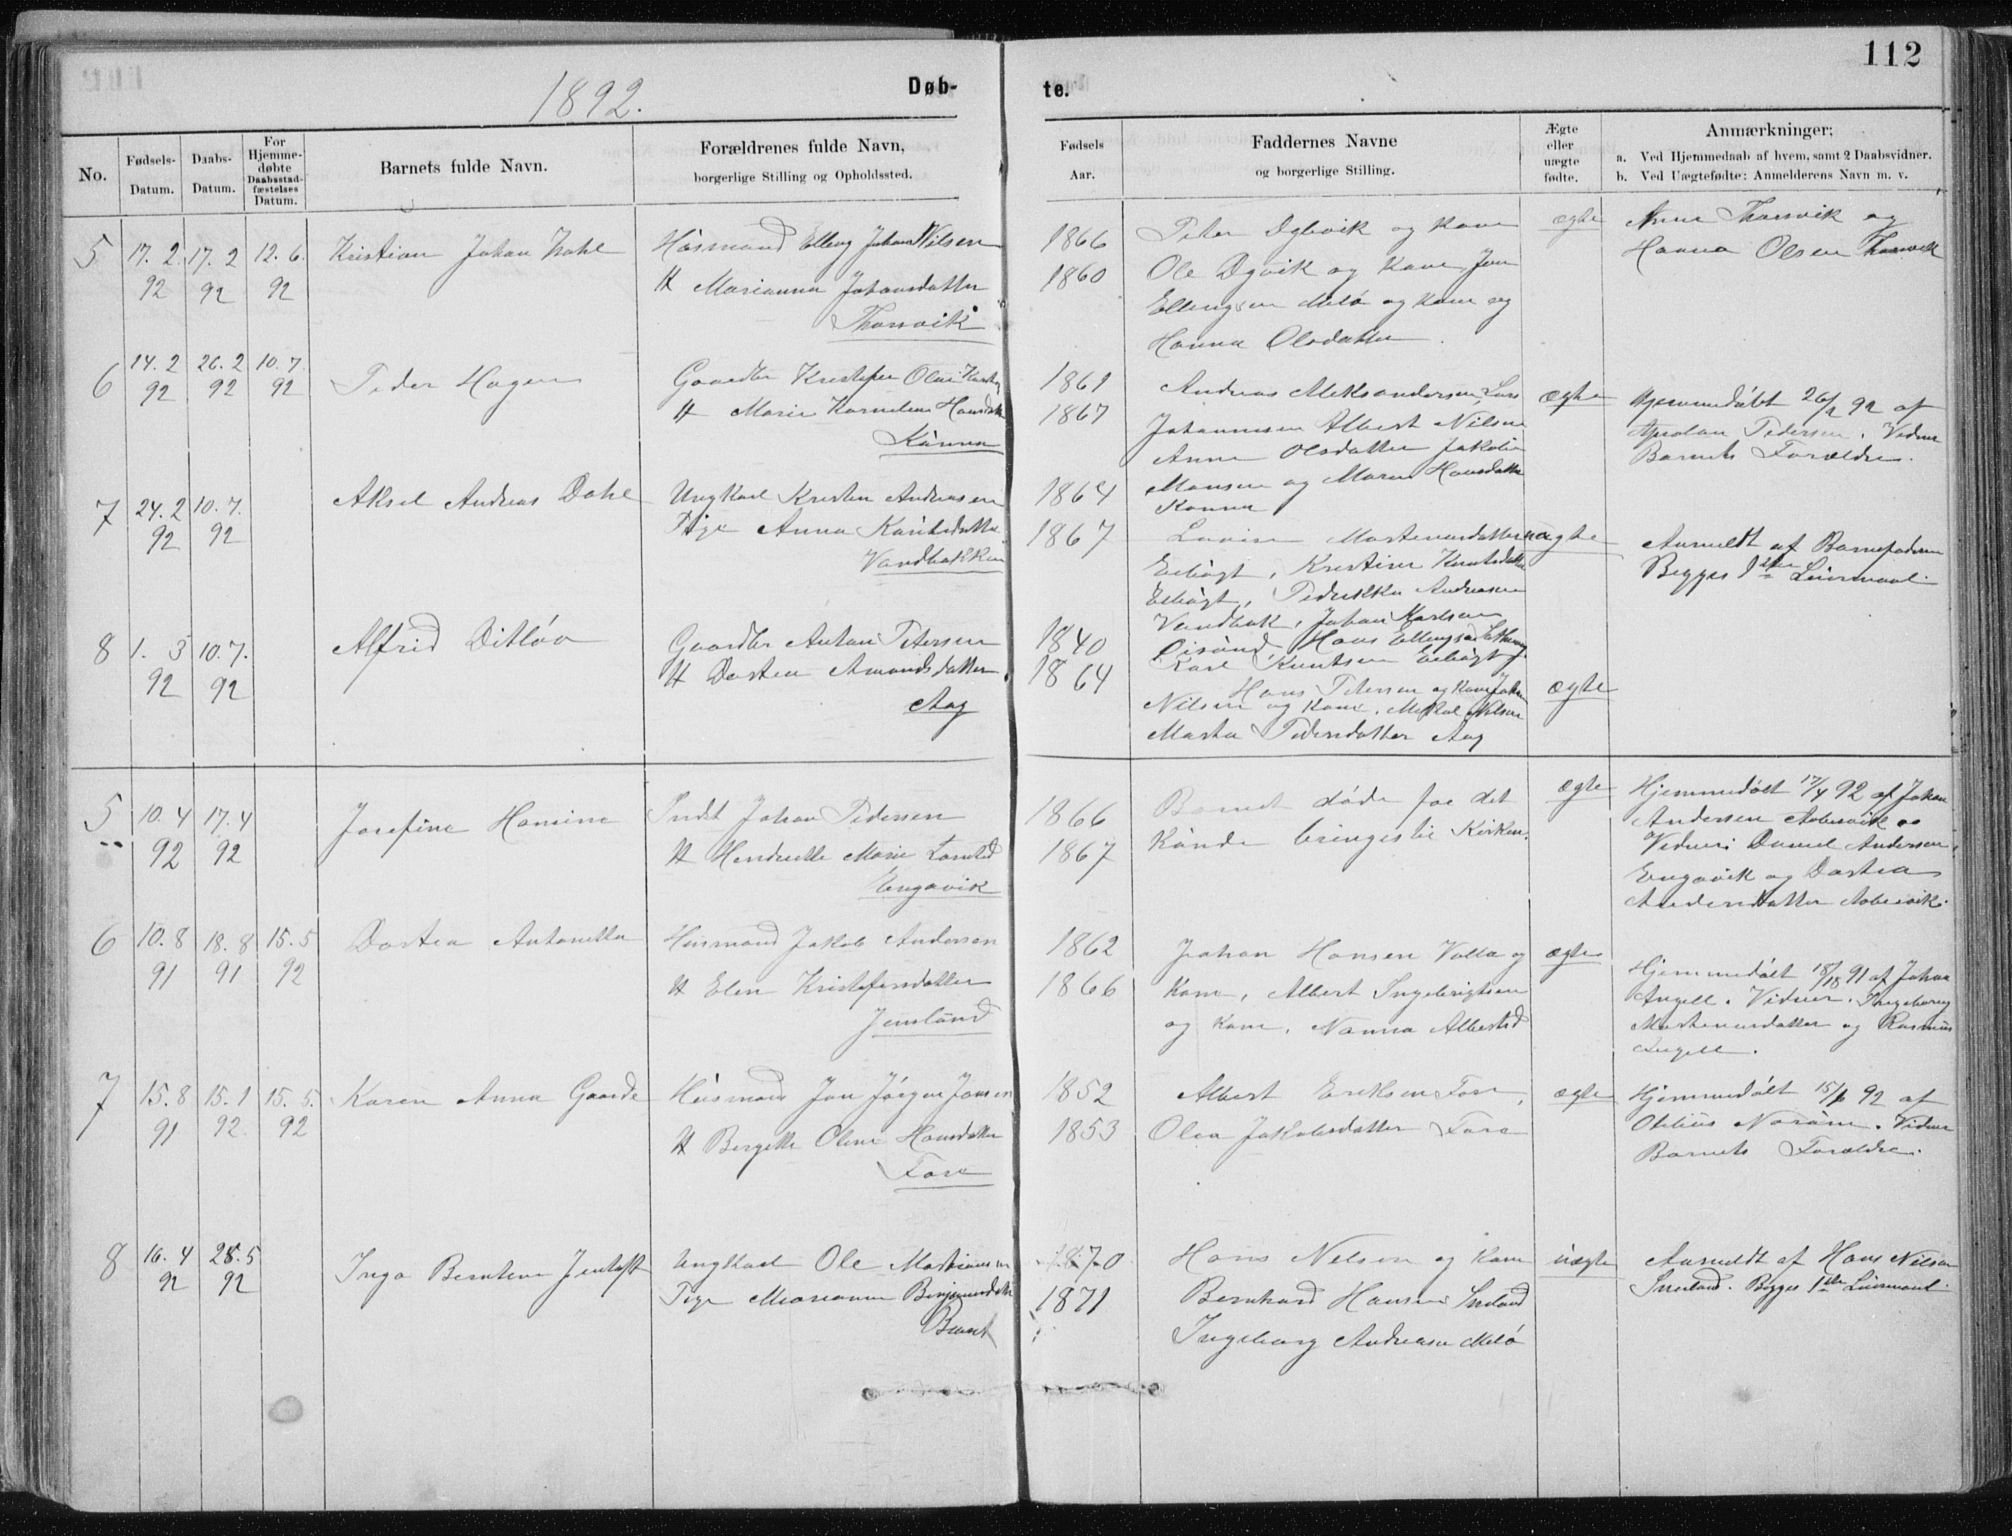 112
1892.
Døb-
te.
No.
Fødsels-
Datum.
Daabs-
Datum.
For
Hjemme-
døbte
Daabsstad-
fæstelses
Datum.
Barnets fulde Navn.
Forældrenes fulde Navn,
borgerlige Stilling og Opholdssted.
Fødsels
Aar.
Faddernes Navne
og borgerlige Stilling.
Ægte
eller
uægte
fødte.
Anmærkninger;
a. Ved Hjemmedaab af hvem, samt 2 Daabsvidner.
b. Ved Uægtefødte: Anmelderens Navn m. v.
5 17.2 92 17.2 92 12.6. 92
Kristian Johan
Husmand Elling Johan Nilsen
H Marianna Johansdatter
Thorsvik
1866
1860
Peter og Kone
Ole og Kone, Jon
Ellingsen Melö og Kone og
Hanna Olsdatter.
ægte
Anne Thorsvik og
Hanna Olsen Thorsvik
6 14.2 92 26.2 92 10.7. 92
Peder Hagen
Gaardbr Kristofer Olai
H Marie Kornelia Hansdatter
1861
1867
Andreas Aleksandersen, Lars
Johannesen Albert Nilsen
Anne Olsdatter Jakobie
Monsen og Maren Hansdatter
ægte
Hjemmedøbt 26/2 92 af
Pedersen. Vidner
Barnets Forældre.
7 24.2 92 10.7. 92
Aksel Andreas Dahl
Ungkarl Kristen Andreassen
Pige Anna
Vandbakken
1864
1867
Lovise
Kristine Knutsdatter
Andreasen
Johan Karlsen
Hans Ellingsen
Karl Knutsen
uægte
Anmeldt af Barnefaderen
Begges 1ste Leiermaal.
8 1.3 92 10.7. 92
Alfrid Ditløv
Gaardbr Anton Petersen
H Dortea Amundsdatter
Aag
1840
1864
Hans Petersen og Kone
Nilsen og Kone, Mikal Nilsen
Marta Pedersdatter Aag
ægte
5 10.4 92 17.4 92
Josefine Hansine
Indst Johan Pedersen
H Hendrikke Marie Larsd
Engavik
1866
1867
Barnet døde før det
kunde bringes til Kirken.
ægte
Hjemmedøbt 17/4 92 af Johan
Andersen
Vidner: Daniel Andersen
Engavik og Dortea
Andersdatter
6 10.8 91 18.8 91 15.5 92
Dortea Antonette
Husmand Jakob Andersen
H Elen Kristofersdatter
1862
1866
Johan Hansen Valla og
Kone, Albert Ingebrigtsen
og Kone, Nanna Albertsd
ægte
Hjemmedøbt 91 af Johan
Angell. Vidner. Ingeborg
Mortensdatter og Rasmus
Angell.
7 15.8 91 15.1 92. 15.5. 92
Karen Anna Gaarde
Husmand Jon Jørgen Jonsen
H Bergitte Oline Hansdatter
Fore
1852
1853
Albert Eriksen Fore,
Olea Jakobsdatter Fore
ægte
Hjemmedøbt 15/1 92 af
Vidner
Barnets Forældre.
8 16.4 92 28.5 92
Inga Berntine Jentoft
Ungkarl Ole
Pige Marianne Benjaminsdatter
1870
1871
Hans Nilsen og Kone
Bernhard Hansen
Ingeborg Andreasen Melö
uægte
Anmeldt af Hans Nilsen
Begges 1ste Leiermaal.